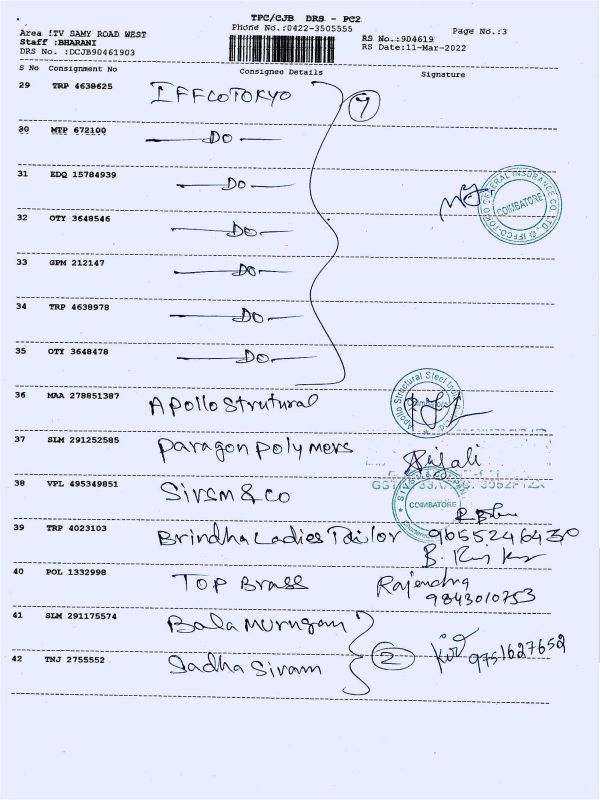 TPC/CJB DRS - PC2
Phone No.:0422-3505555
Page No.:3
Area :TV SAMY ROAD WEST
Staff :BHARANI
DRS No. :DCJB90461903
RS No.:904619
RS Date:11-Mar-2022
S No Consignment No Consignee Details Signature
29 TRP 4638625 IFFCOTOKYO 7
30 MTP 672100 DO
31 EDQ 15784939 DO
IFFCO-TOKIO GENERAL INSURANCE CO. LTD. COIMBATORE
32 OTY 3648546 DO
33 GPM 212147 DO
34 TRP 4638978 DO
35 OTY 3648478 DO
36 MAA 278851387 Apollo Strutural
Apollo Structural Steel
37 SLM 291252585 Paragon Polymers
38 VPL 495349851 Sivam & co
COIMBATORE
39 TRP 4023103 Brindha Ladies Tailor 9655246430
40 POL 1332998 TOP BRASS Rajendra
9843010753
41 SLM 291175574 Bala Murugan
42 TNJ 2755552 Sadha Sivam 2 9751627652